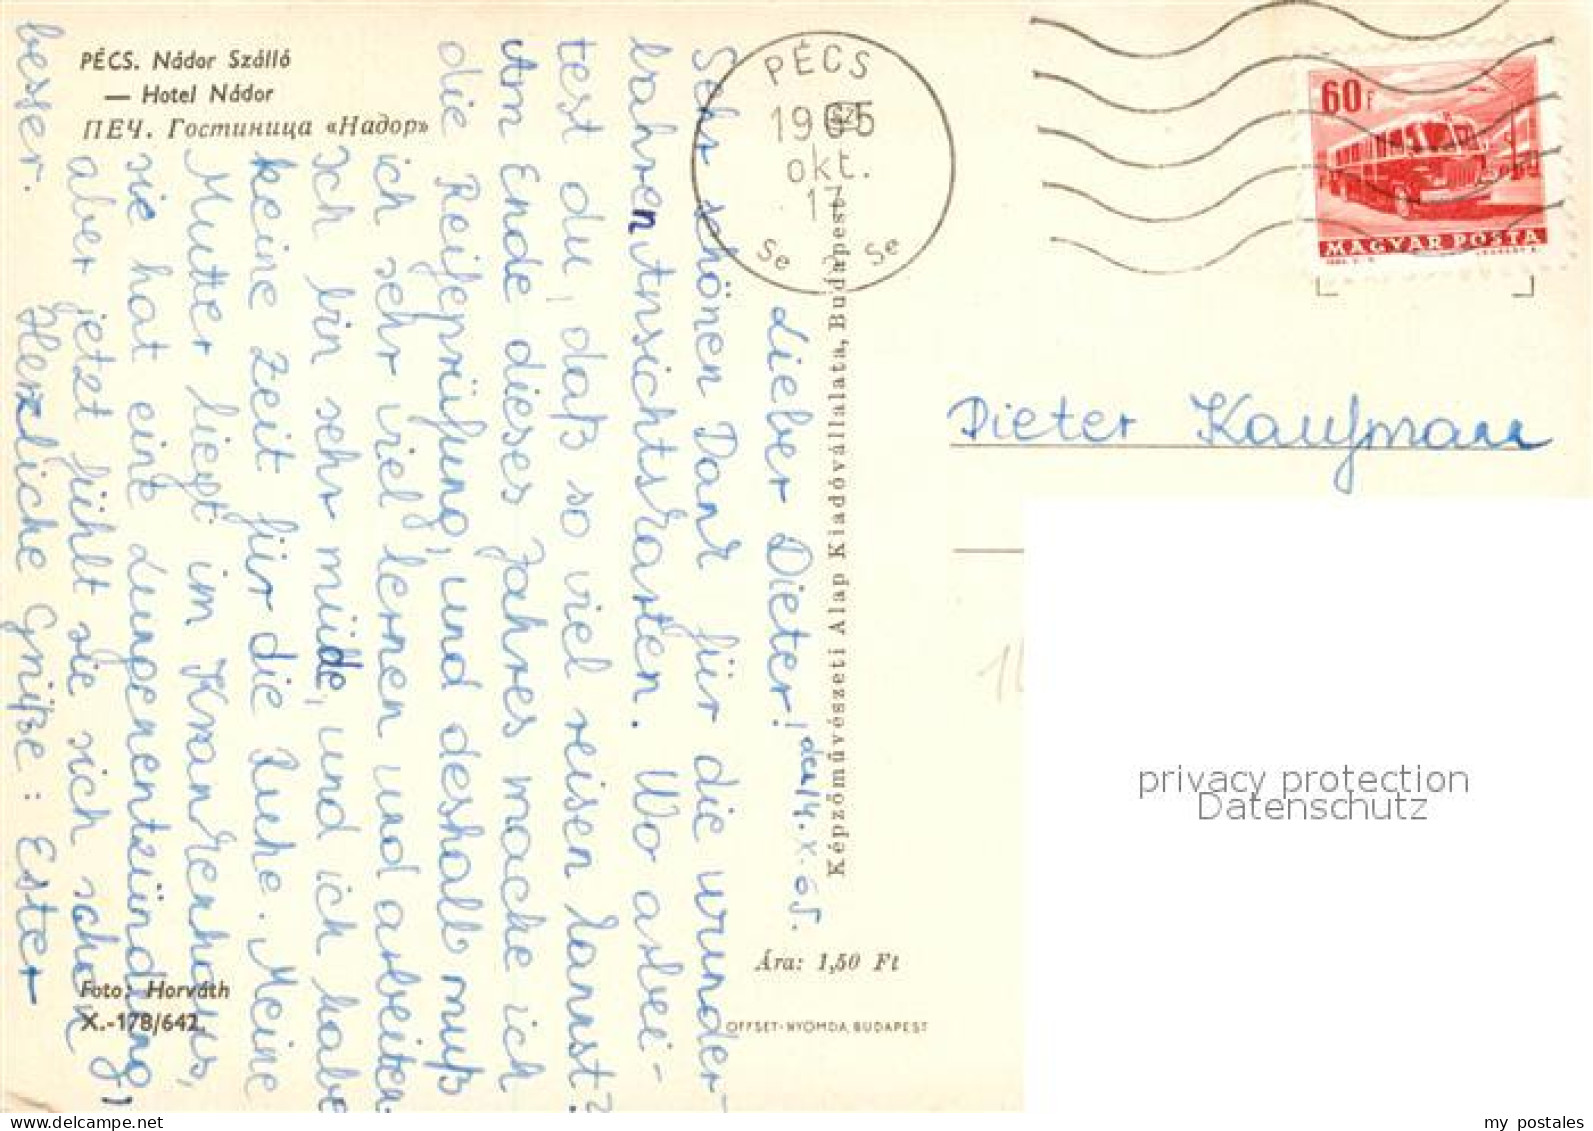 PÉCS. Nádor Szálló
— Hotel Nádor
ПЕЧ. Гостиница «Надор»
PÉCS
1965
okt.
17
Se
Se
60f
MAGYAR POSTA
den 14. X. 65.
Lieber Dieter!
Sehr schönen Dank für die wunder-
bahren Ansichtskarten. Wo arbei-
test du, daß so viel reisen kannst?
Am Ende dieses Jahres mache ich
die Reifeprüfung, und deshalb muß
ich sehr viel lernen und arbeiten.
Ich bin sehr müde, und ich habe
keine Zeit für die Ruhe. Meine
Mutter liegt im Krankenhaus,
sie hat eine Lungenentzündung,
aber jetzt fühlt sie sich schon
besser. Herzliche Grüße: Ester
Képzőművészeti Alap Kiadóvállalata, Budapest
Dieter Kaufmann
privacy protection
Datenschutz
Ára: 1,50 Ft
Foto: Horváth
X.-178/642.
OFFSET-NYOMDA, BUDAPEST
my postales